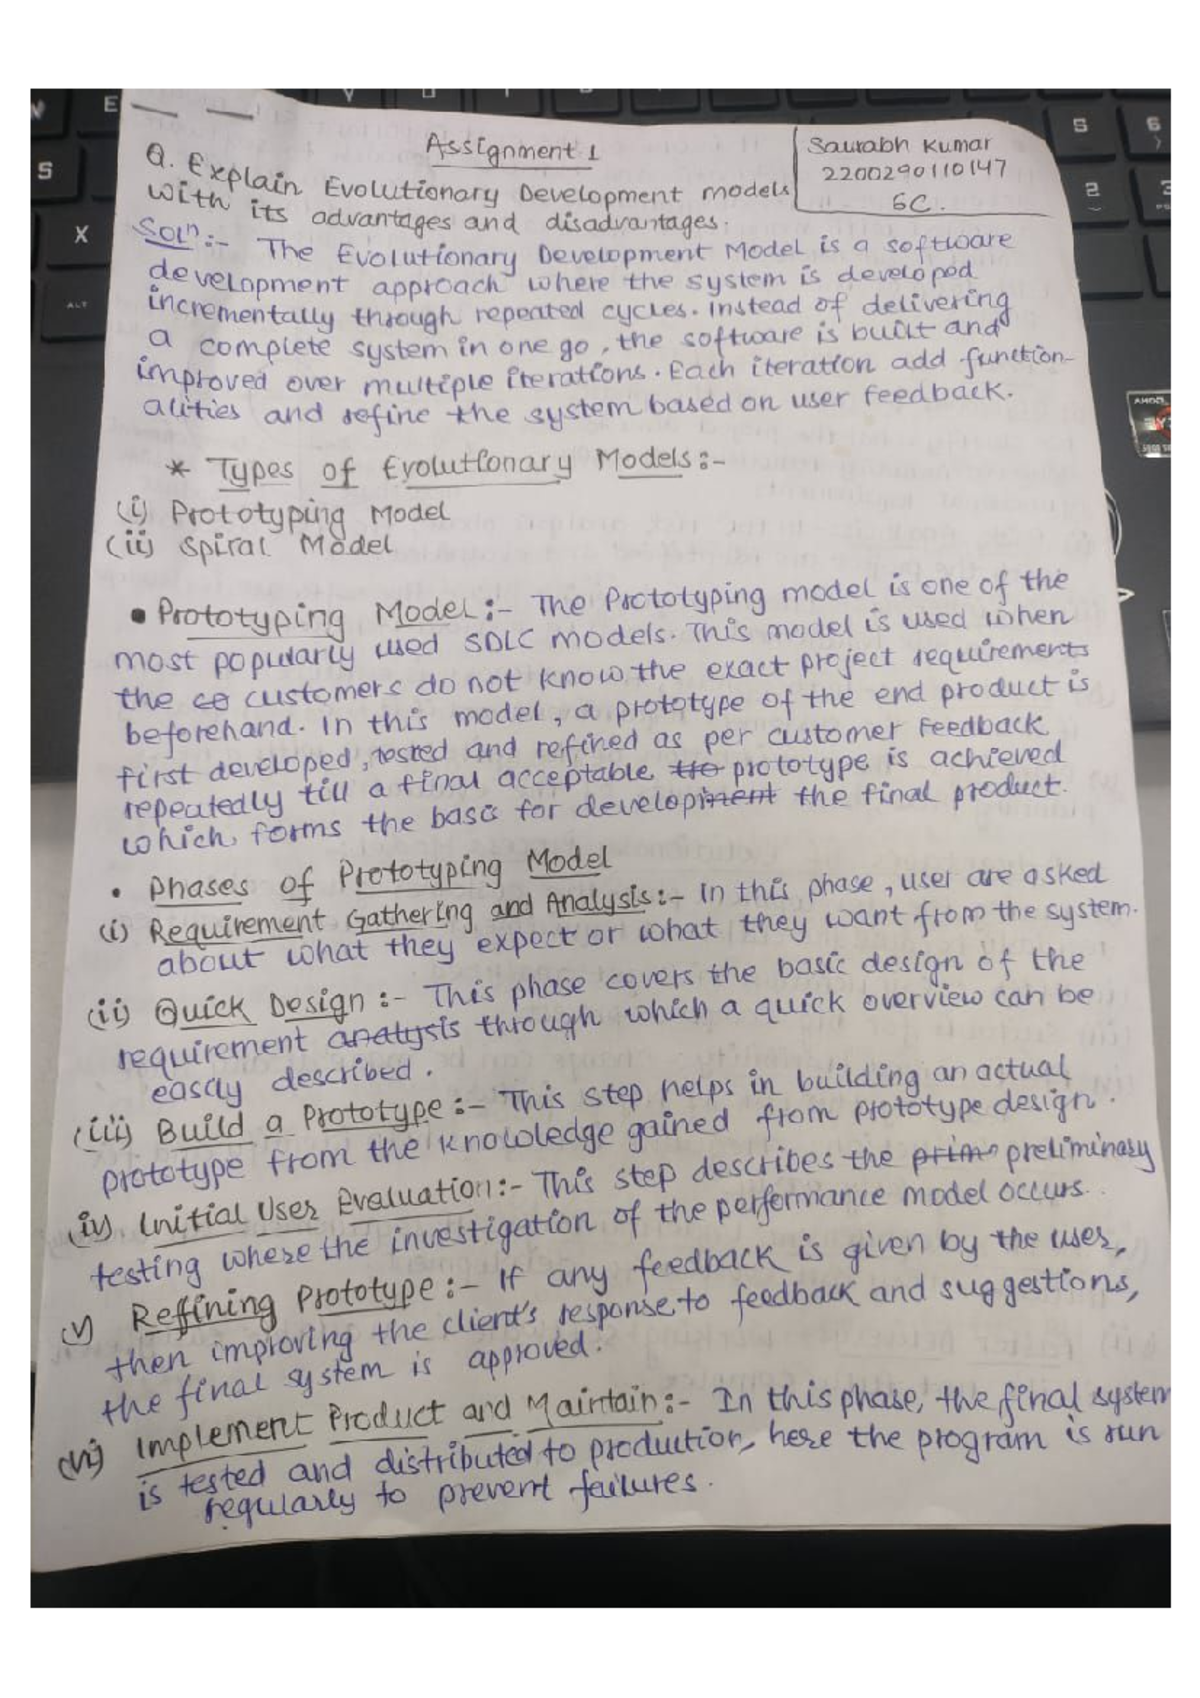 Assignment 1
Saurabh Kumar
2200290110147
Q. Explain Evolutionary Development models
with its advantages and disadvantages.
Solⁿ:- The Evolutionary Development Model is a software
development approach where the system is developed
incrementally through repeated cycles. Instead of delivering
a complete system in one go, the software is built and
improved over multiple iterations. Each iteration add function-
alities and refine the system based on user feedback.
* Types of Evolutionary Models:-
(i) Prototyping Model
(ii) Spiral Model
• Prototyping Model:- The Prototyping model is one of the
most popularly used SDLC models. This model is used when
the co customers do not know the exact project requirements
beforehand. In this model, a prototype of the end product is
first developed, tested and refined as per customer feedback
repeatedly till a final acceptable prototype is achieved
which forms the basis for development the final product.
• Phases of Prototyping Model
(i) Requirement Gathering and Analysis:- In this phase, user are asked
about what they expect or what they want from the system.
(ii) Quick Design:- This phase covers the basic design of the
requirement analysis through which a quick overview can be
easily described.
(iii) Build a Prototype:- This step helps in building an actual
prototype from the knowledge gained from prototype design.
(iv) Initial User Evaluation:- This step describes the preliminary
testing where the investigation of the performance model occurs.
(v) Reffining Prototype:- If any feedback is given by the user,
then improving the client's response to feedback and suggestions,
the final system is approved.
(vi) Implement Product and Maintain:- In this phase, the final system
is tested and distributed to production, here the program is run
regularly to prevent failures.